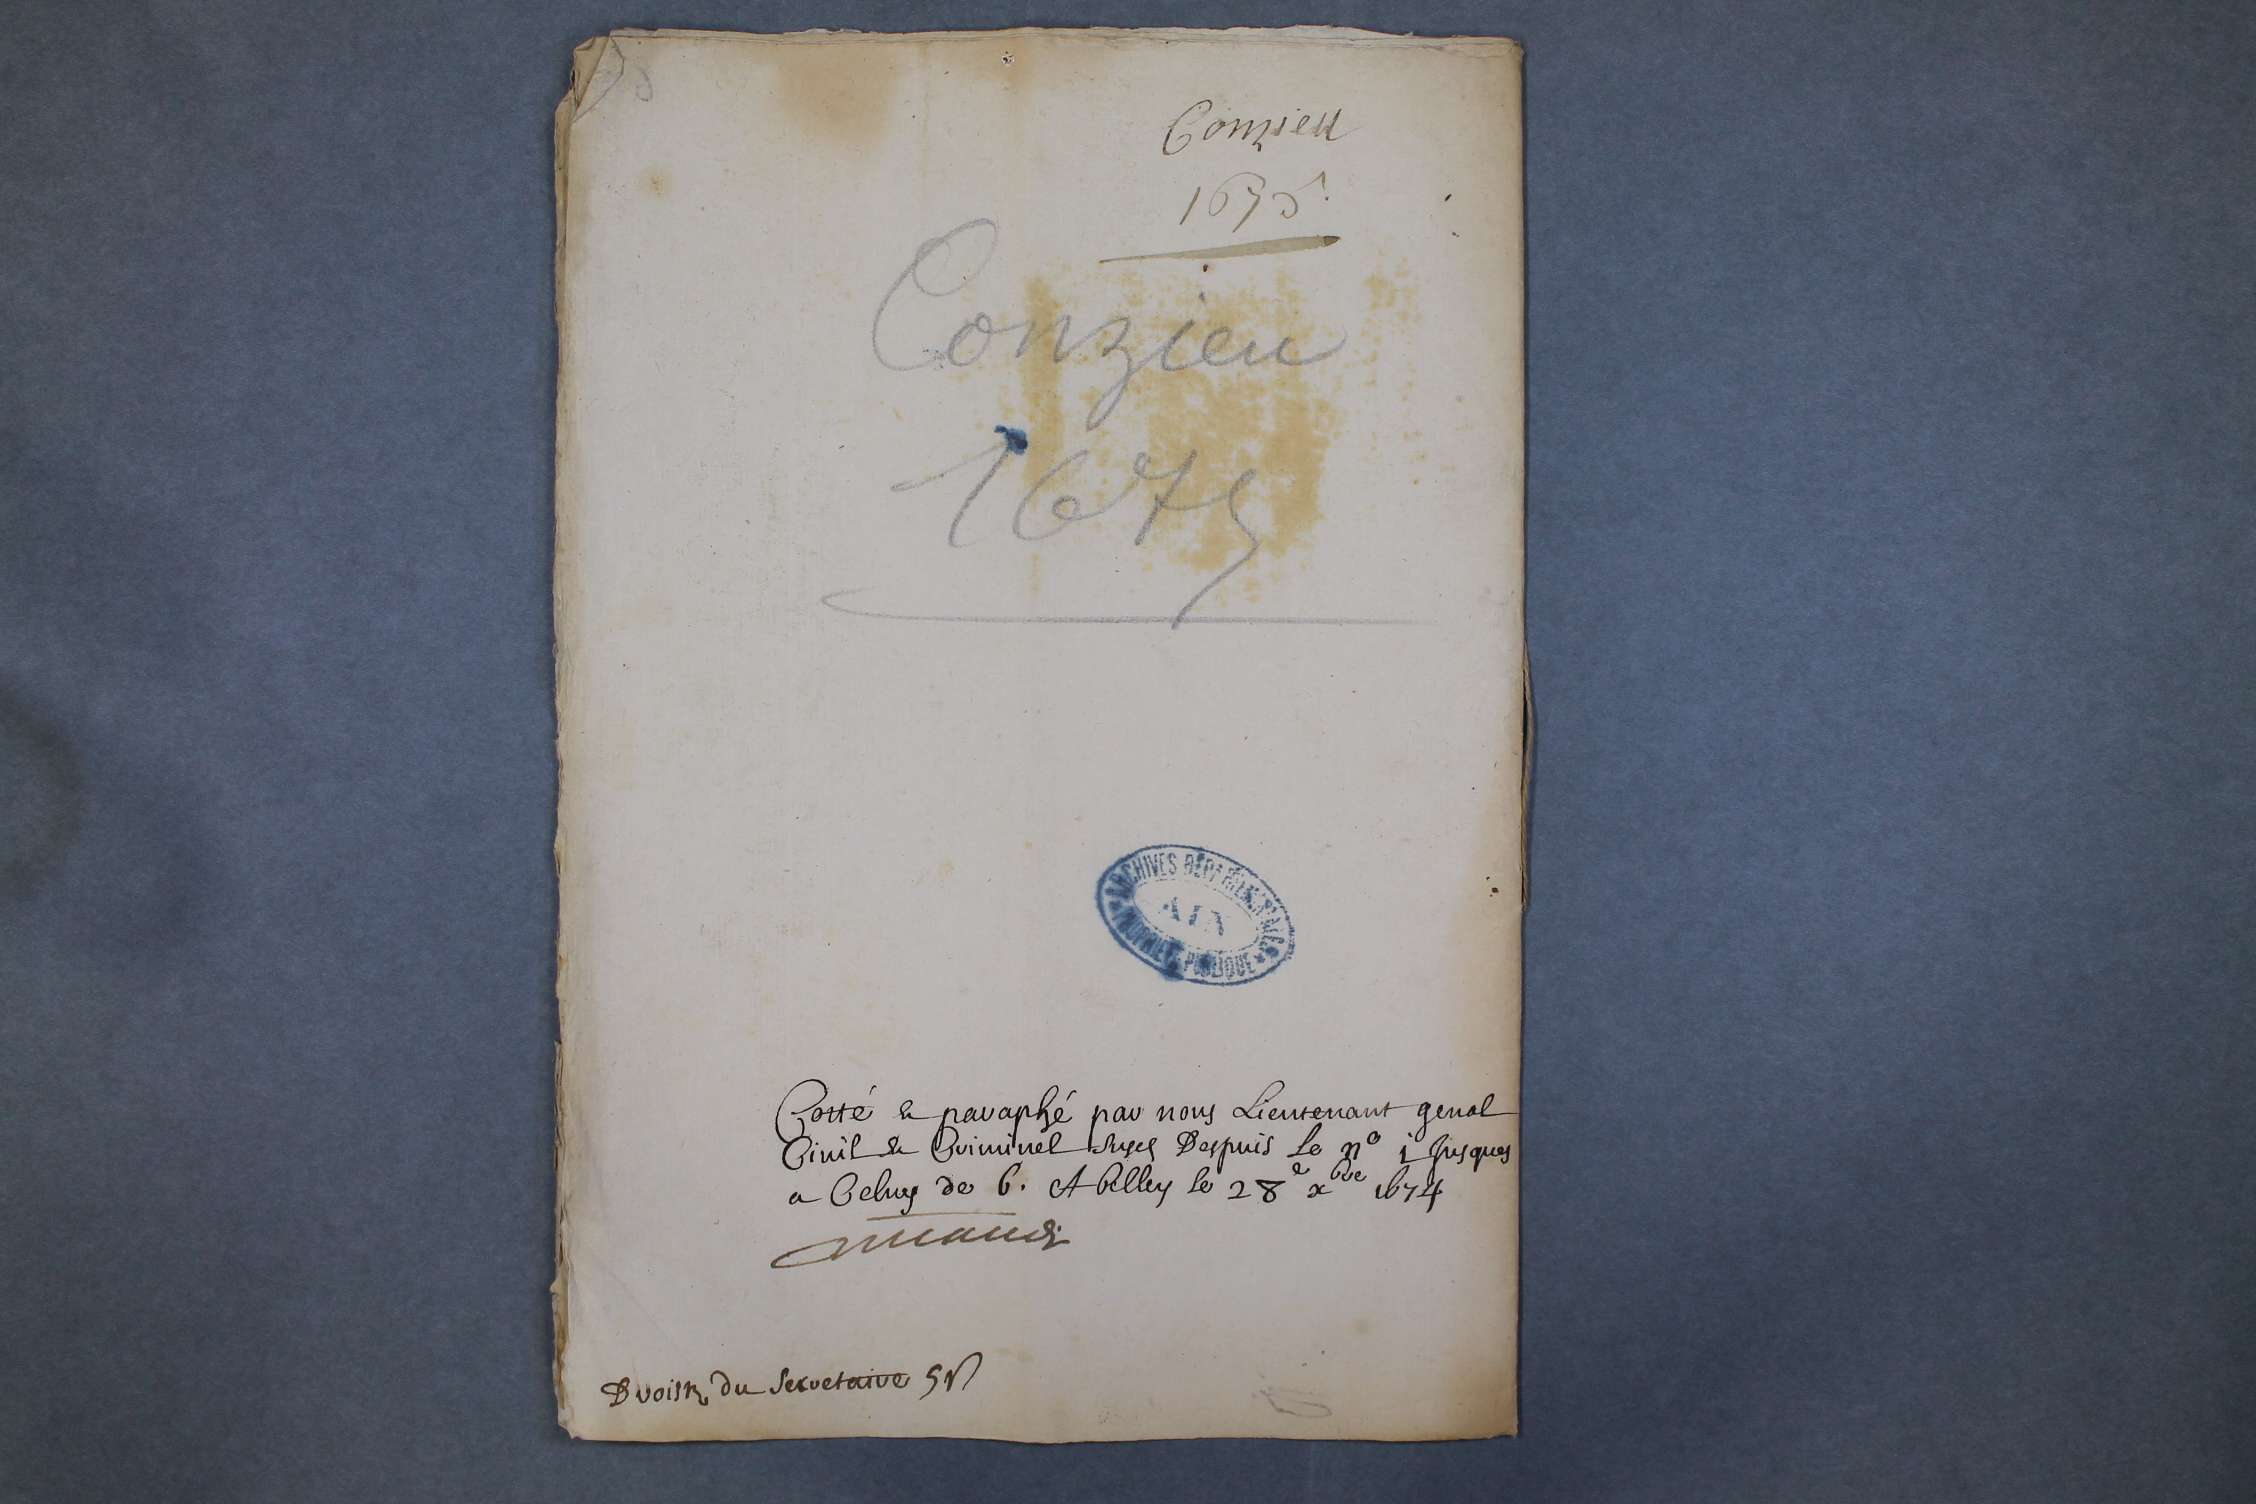 Conzieu
1675.
Conzieu
1675
ARCHIVES DÉPARTEMENTALES
AIN
PROPRIÉTÉ PUBLIQUE
Cotté & paraphé par nous Lieutenant genal
Civil & Criminel Despuis le n° 1 Jusques
a Celuy de 6. A belley le 28e xbre 1674
Droistz du Secretaire 5 s